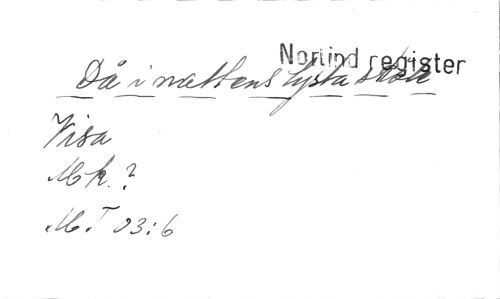 Norlind register
Då i nattens tysta sköte
Visa
Mk. ?
MT 03:6